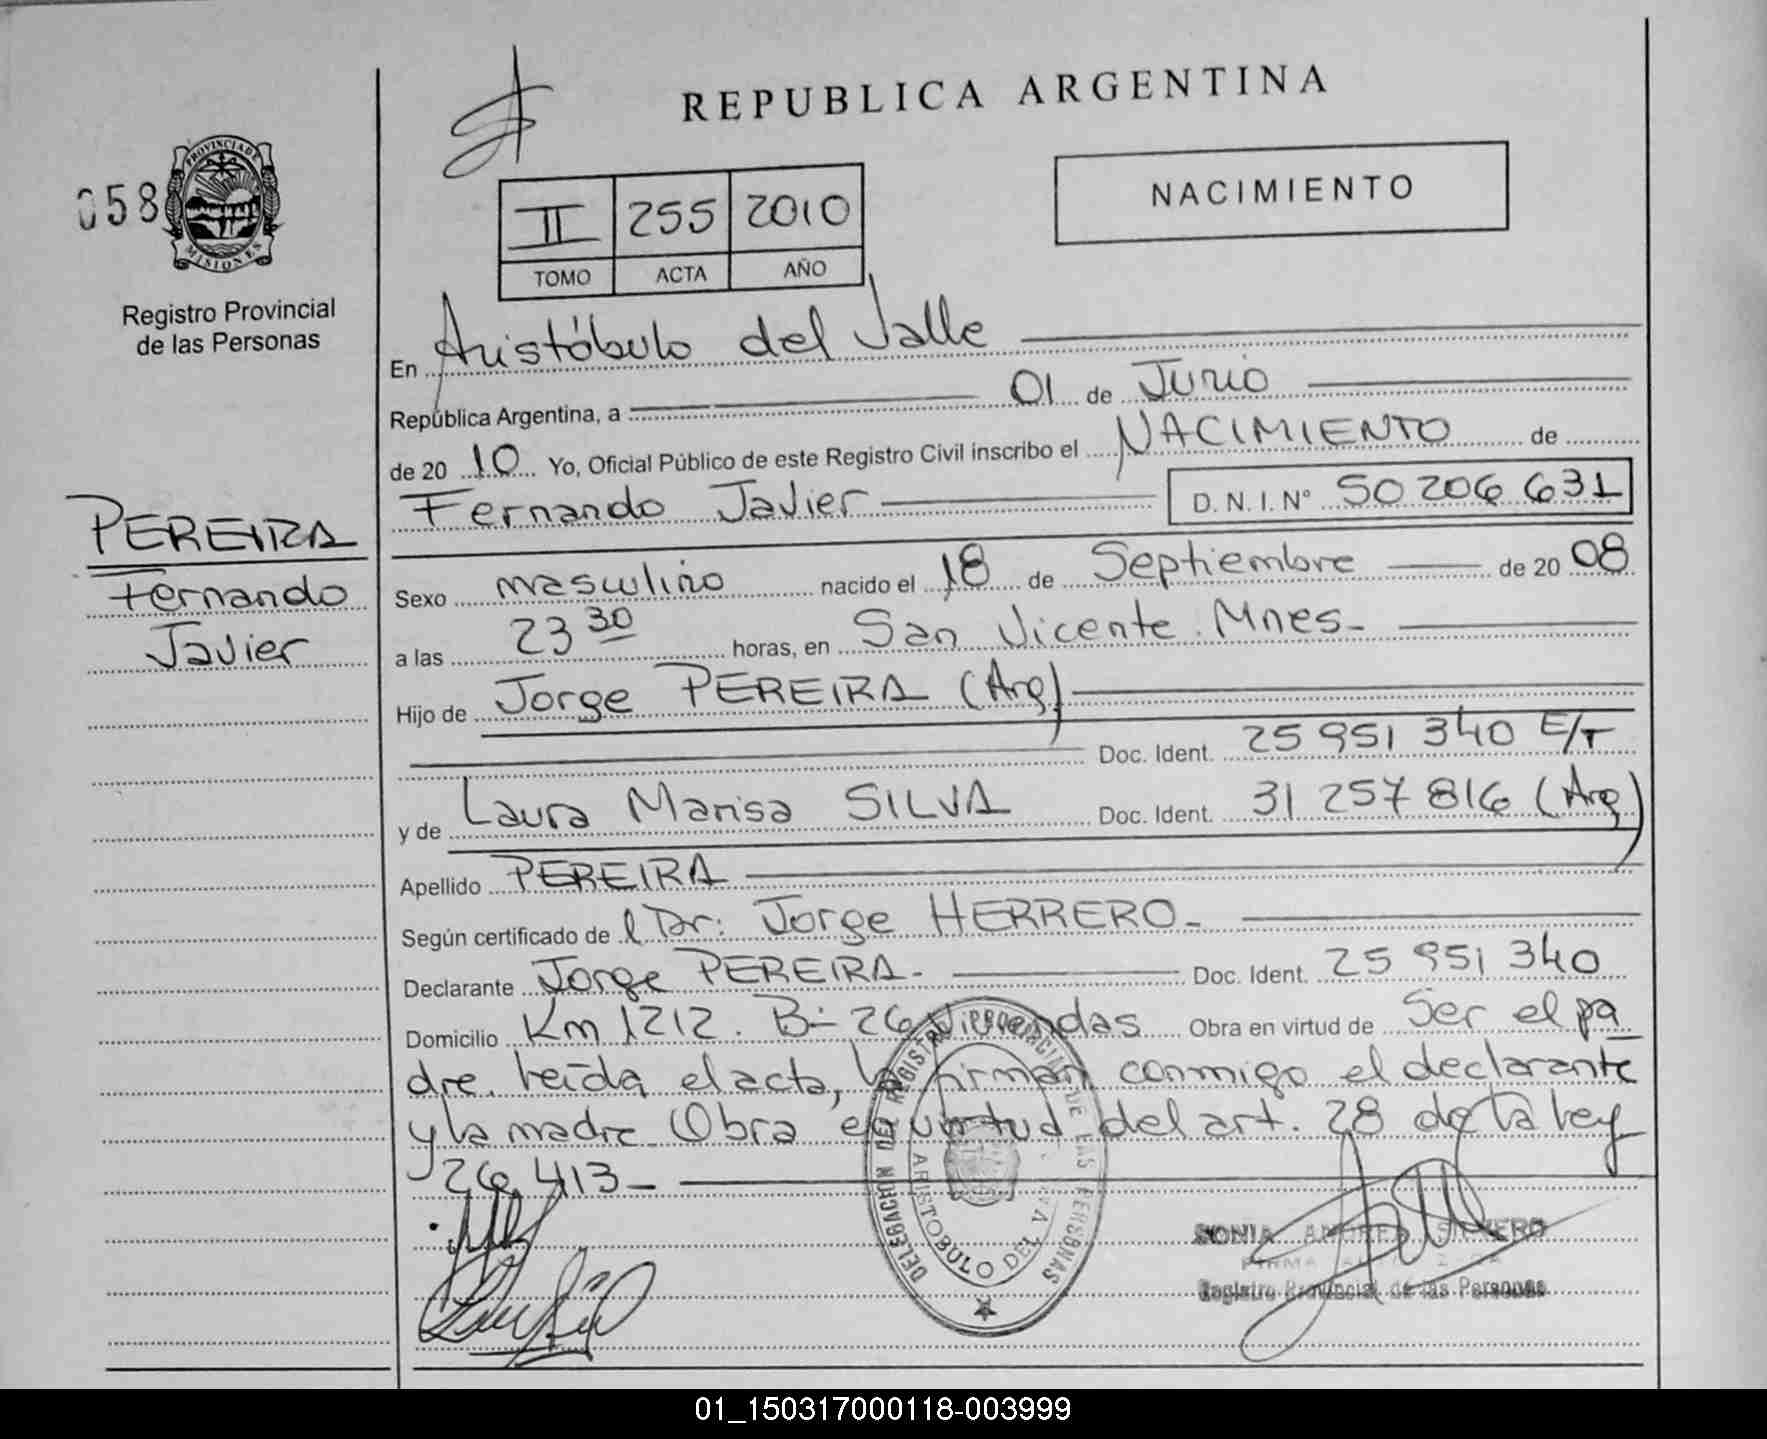 REPUBLICA ARGENTINA
058
PROVINCIA DE
MISIONES
Registro Provincial
de las Personas
II 255 2010
TOMO ACTA AÑO
NACIMIENTO
En Aristóbulo del Valle
República Argentina, a 01 de Junio
de 20 10 Yo, Oficial Público de este Registro Civil inscribo el NACIMIENTO de
Fernando Javier D. N. I. N° 50 206 631
PEREIRA
Fernando
Javier
Sexo masculino nacido el 18 de Septiembre de 20 08
a las 23 30 horas, en San Vicente. Mnes-
Hijo de Jorge PEREIRA (Arg)
Doc. Ident. 25 951 340 E/T
y de Laura Marisa SILVA Doc. Ident. 31 257 816 (Arg)
Apellido PEREIRA
Según certificado de l Dr: Jorge HERRERO-
Declarante Jorge PEREIRA- Doc. Ident. 25 951 340
Domicilio Km 1212. B- 26 Viviendas Obra en virtud de Ser el pa
dre. Leída el acta, la firman conmigo el declarante
y la madre Obra en virtud del art. 28 de la ley
26 413-
DELEGACION DEL REGISTRO PROVINCIAL DE LAS PERSONAS
ARISTOBULO DEL
SONIA
Registro Provincial de las Personas
01_150317000118-003999